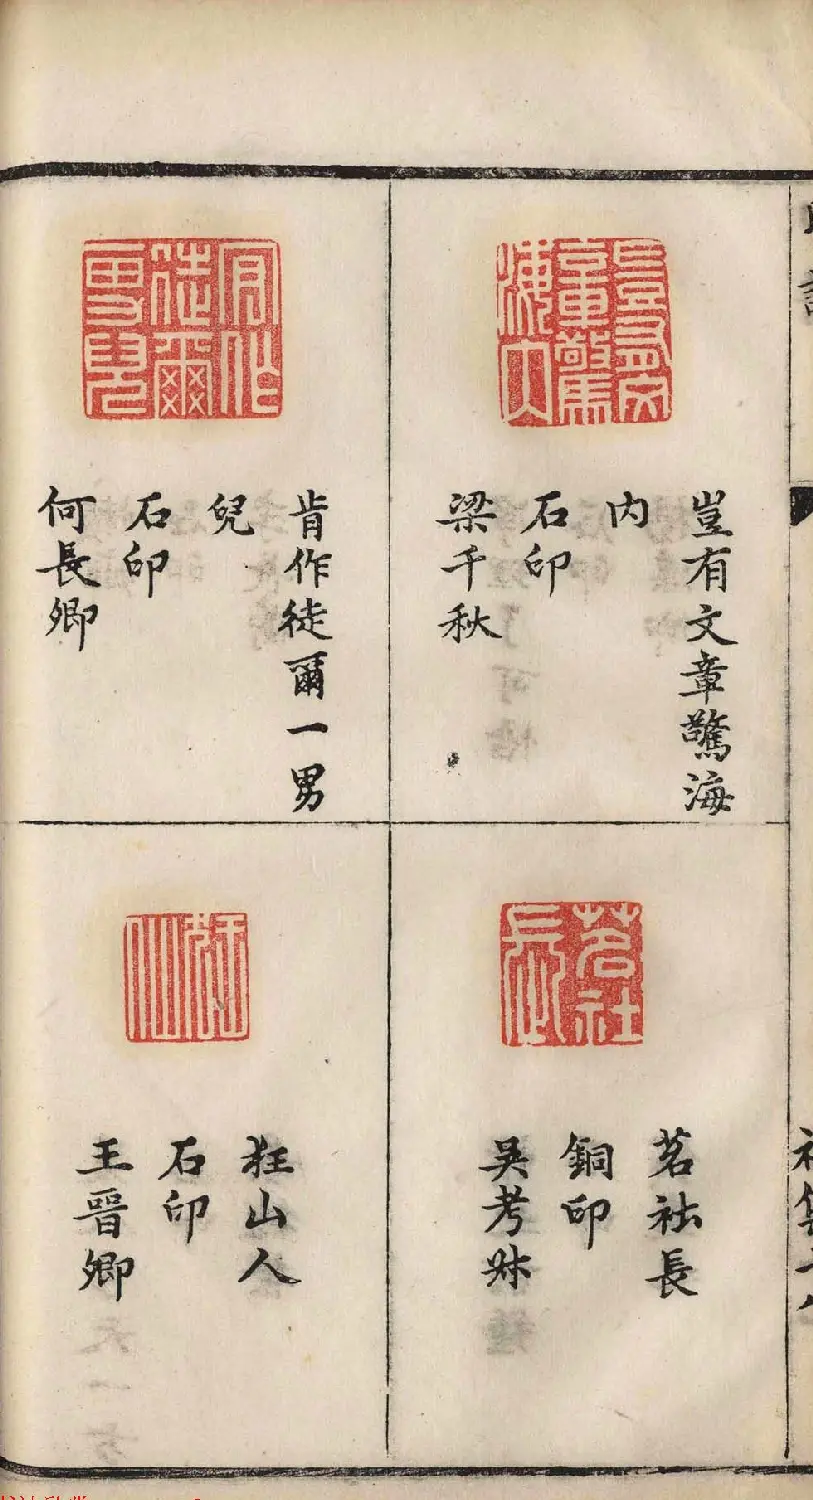 豈有文章驚海
内
石印
梁千秋
肯作徒爾一男
兒
石印
何長卿
茗社長
銅印
吳考叔
狂山人
石印
王晉卿